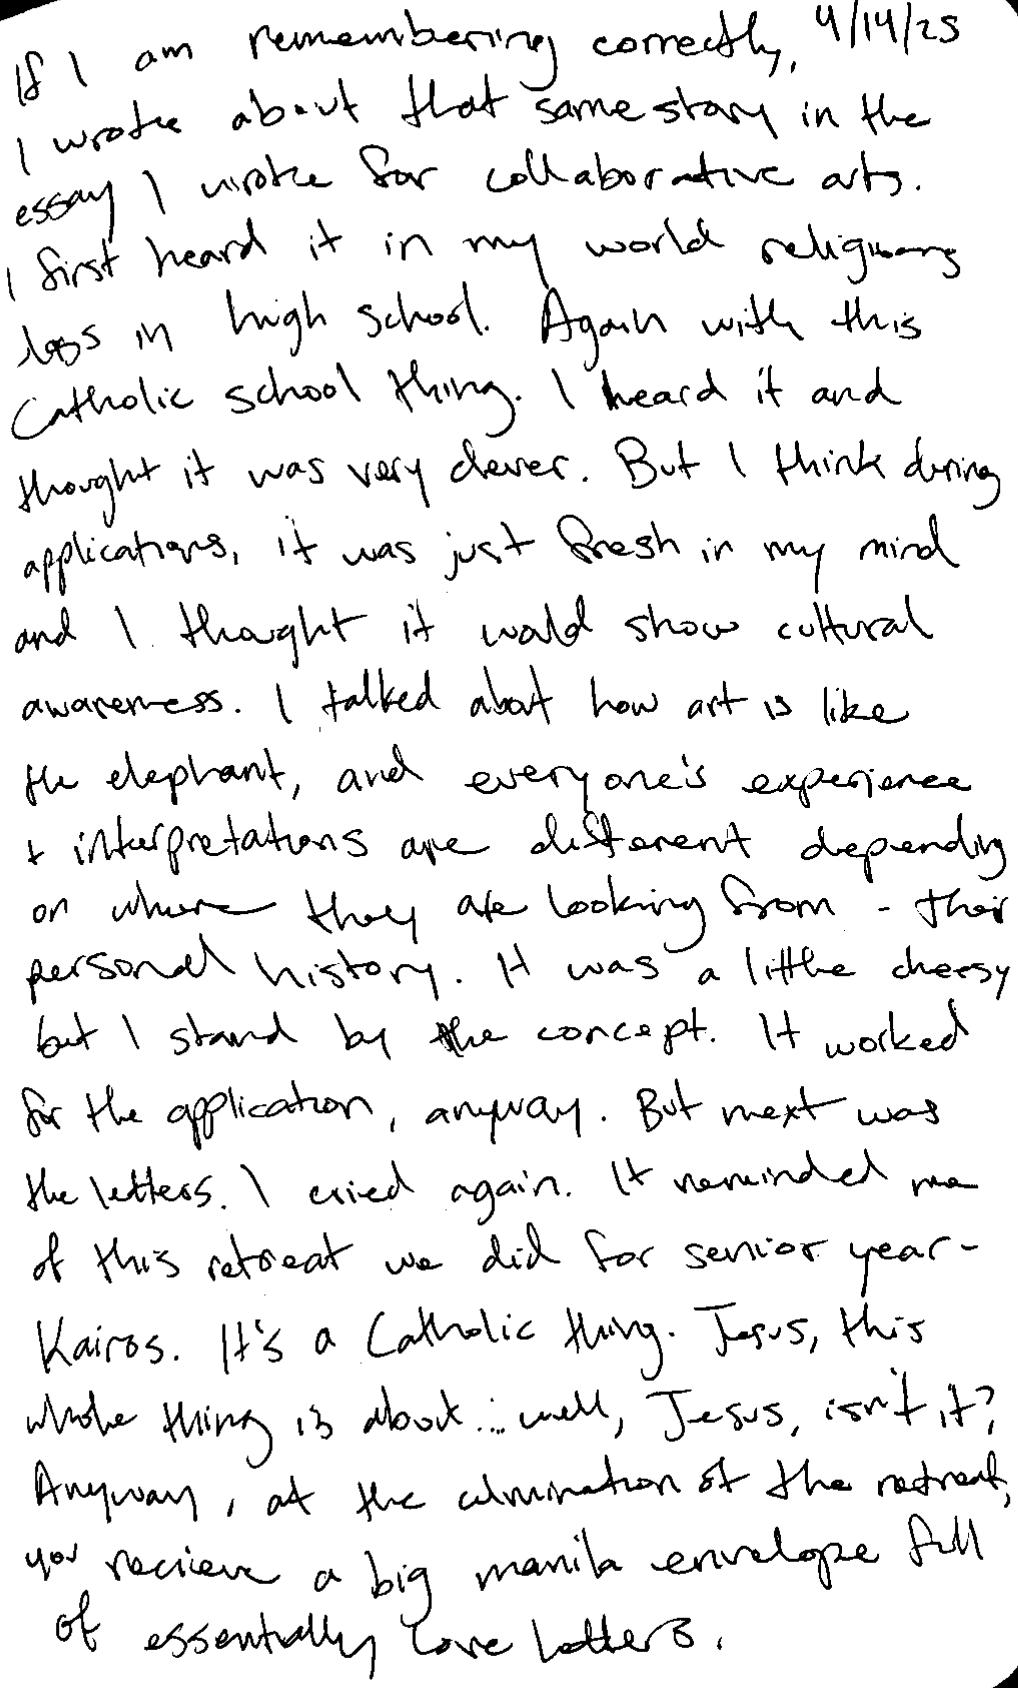 If I am remembering correctly, 4/14/25
I wrote about that same story in the
essay I wrote for collaborative arts.
I first heard it in my world religions
class in high school. Again with this
Catholic school thing. I heard it and
thought it was very clever. But I think during
applications, it was just fresh in my mind
and I thought it would show cultural
awareness. I talked about how art is like
the elephant, and everyone's experience
+ interpretations are different depending
on where they are looking from - their
personal history. It was a little cheesy
but I stand by the concept. It worked
for the application, anyway. But next was
the letters. I cried again. It reminded me
of this retreat we did for senior year-
Kairos. It's a Catholic thing. Jesus, this
whole thing is about... well, Jesus, isn't it?
Anyway, at the culmination of the retreat,
you recieve a big manila envelope full
of essentially love letters.